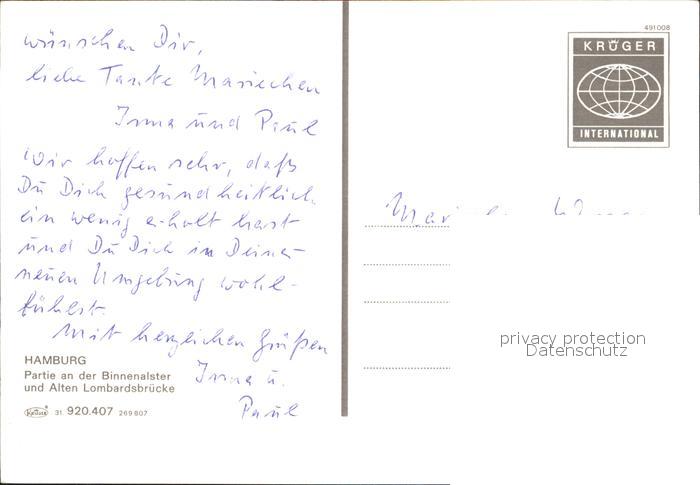 wünschen Dir,
liebe Tante Mariechen
Irma und Paul
Wir hoffen sehr, daß
Du Dich gesundheitlich
ein wenig erholt hast
und Du Dich in Deiner
neuen Umgebung wohl-
fühlst.
Mit herzlichen Grüßen
Irma u.
Paul
HAMBURG
Partie an der Binnenalster
und Alten Lombardsbrücke
Krüger 31 920.407 269807
491008
KRÜGER
INTERNATIONAL
privacy protection
Datenschutz